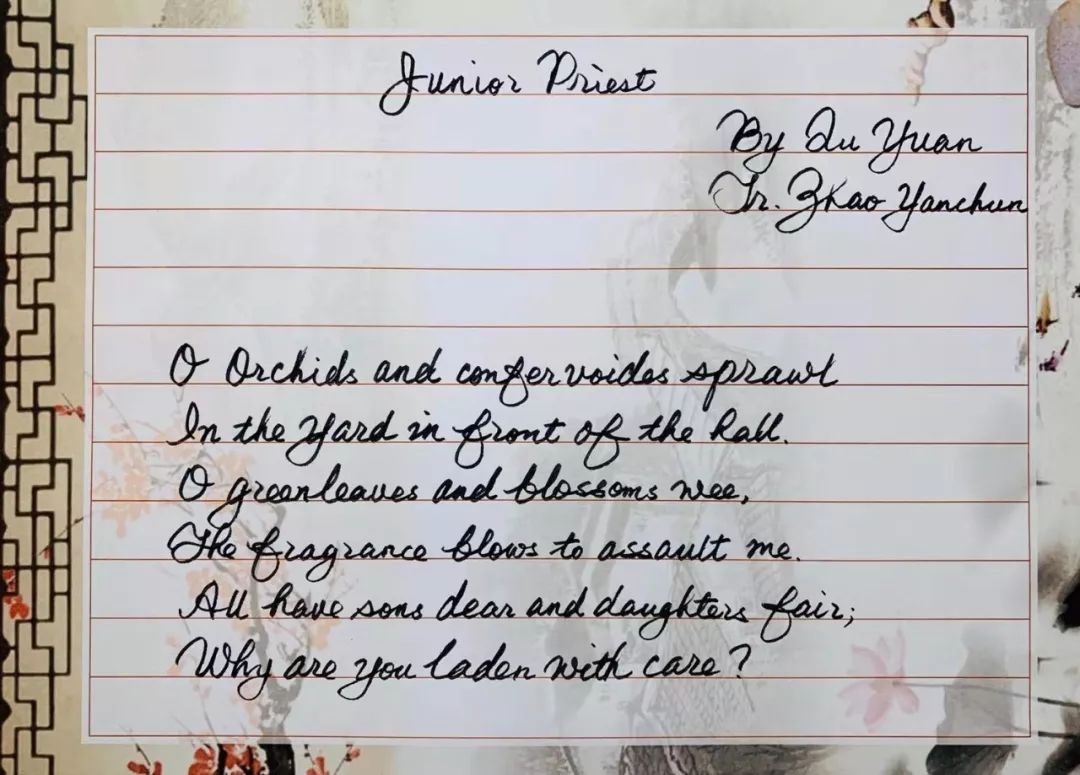 Junior Priest
By Qu Yuan
Tr. Zhao Yanchun
O Orchids and confervoides sprawl
In the Yard in front of the hall.
O greenleaves and blossoms wee,
The fragrance blows to assault me.
All have sons dear and daughters fair;
Why are you laden with care?